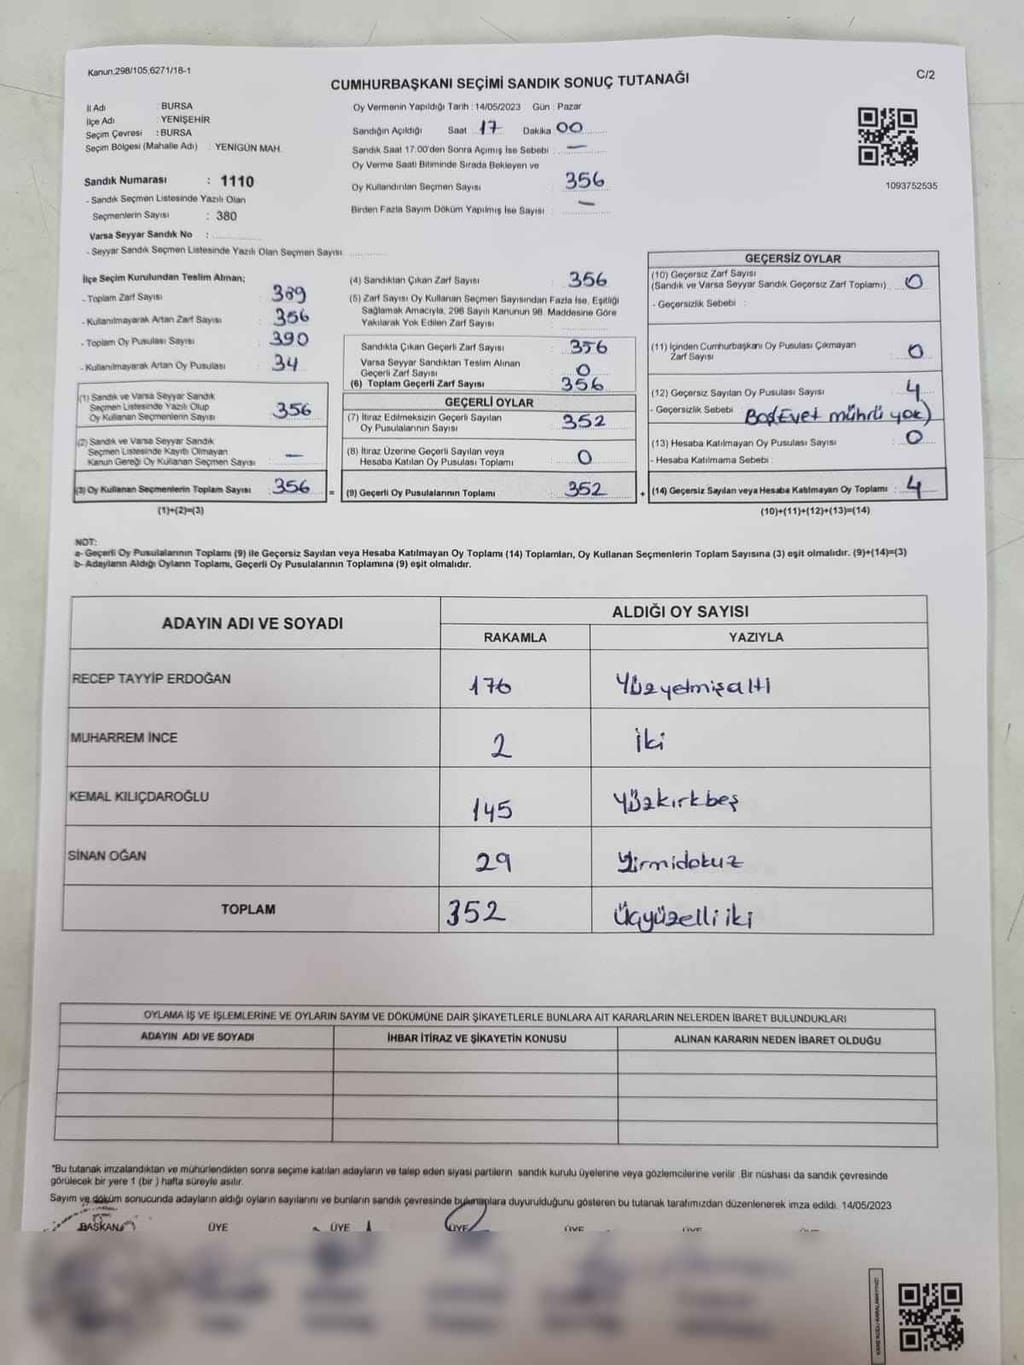 Kanun,298/105,6271/18-1
C/2
CUMHURBAŞKANI SEÇİMİ SANDIK SONUÇ TUTANAĞI
İl Adı : BURSA
İlçe Adı : YENİŞEHİR
Seçim Çevresi : BURSA
Seçim Bölgesi (Mahalle Adı) : YENİGÜN MAH.
Sandık Numarası : 1110
- Sandık Seçmen Listesinde Yazılı Olan
Seçmenlerin Sayısı : 380
Varsa Seyyar Sandık No :
- Seyyar Sandık Seçmen Listesinde Yazılı Olan Seçmen Sayısı
Oy Vermenin Yapıldığı Tarih : 14/05/2023 Gün : Pazar
Sandığın Açıldığı Saat 17 Dakika 00
Sandık Saat 17:00'den Sonra Açımış İse Sebebi : —
Oy Verme Saati Bitiminde Sırada Bekleyen ve
Oy Kullandırılan Seçmen Sayısı 356
Birden Fazla Sayım Döküm Yapılmış İse Sayısı : —
1093752535
İlçe Seçim Kurulundan Teslim Alınan;
- Toplam Zarf Sayısı 389
- Kullanılmayarak Artan Zarf Sayısı : 356
- Toplam Oy Pusulası Sayısı 390
- Kullanılmayarak Artan Oy Pusulası 34
(1) Sandık ve Varsa Seyyar Sandık
Seçmen Listesinde Yazılı Olup
Oy Kullanan Seçmenlerin Sayısı 356
(2) Sandık ve Varsa Seyyar Sandık
Seçmen Listesinde Kayıtlı Olmayan
Kanun Gereği Oy Kullanan Seçmen Sayısı —
(3) Oy Kullanan Seçmenlerin Toplam Sayısı 356 =
(1)+(2)=(3)
(4) Sandıktan Çıkan Zarf Sayısı 356
(5) Zarf Sayısı Oy Kullanan Seçmen Sayısından Fazla İse, Eşitliği
Sağlamak Amacıyla, 298 Sayılı Kanunun 98. Maddesine Göre
Yakılarak Yok Edilen Zarf Sayısı
Sandıkta Çıkan Geçerli Zarf Sayısı : 356
Varsa Seyyar Sandıktan Teslim Alınan
Geçerli Zarf Sayısı 0
(6) Toplam Geçerli Zarf Sayısı 356
GEÇERLİ OYLAR
(7) İtiraz Edilmeksizin Geçerli Sayılan
Oy Pusulalarının Sayısı 352
(8) İtiraz Üzerine Geçerli Sayılan veya
Hesaba Katılan Oy Pusulası Toplamı 0
(9) Geçerli Oy Pusulalarının Toplamı 352 +
GEÇERSİZ OYLAR
(10) Geçersiz Zarf Sayısı
(Sandık ve Varsa Seyyar Sandık Geçersiz Zarf Toplamı) : 0
- Geçersizlik Sebebi :
(11) İçinden Cumhurbaşkanı Oy Pusulası Çıkmayan
Zarf Sayısı 0
(12) Geçersiz Sayılan Oy Pusulası Sayısı 4
- Geçersizlik Sebebi Boş Evet mührü yok)
(13) Hesaba Katılmayan Oy Pusulası Sayısı 0
- Hesaba Katılmama Sebebi :
(14) Geçersiz Sayılan veya Hesaba Katılmayan Oy Toplamı : 4
(10)+(11)+(12)+(13)=(14)
NOT:
a- Geçerli Oy Pusulalarının Toplamı (9) ile Geçersiz Sayılan veya Hesaba Katılmayan Oy Toplamı (14) Toplamları, Oy Kullanan Seçmenlerin Toplam Sayısına (3) eşit olmalıdır. (9)+(14)=(3)
b- Adayların Aldığı Oyların Toplamı, Geçerli Oy Pusulalarının Toplamına (9) eşit olmalıdır.
ADAYIN ADI VE SOYADI ALDIĞI OY SAYISI
RAKAMLA YAZIYLA
RECEP TAYYİP ERDOĞAN 176 Yüzyetmişaltı
MUHARREM İNCE 2 İki
KEMAL KILIÇDAROĞLU 145 Yüzkırkbeş
SİNAN OĞAN 29 Yirmidokuz
TOPLAM 352 Üçyüzelliiki
OYLAMA İŞ VE İŞLEMLERİNE VE OYLARIN SAYIM VE DÖKÜMÜNE DAİR ŞİKAYETLERLE BUNLARA AİT KARARLARIN NELERDEN İBARET BULUNDUKLARI
ADAYIN ADI VE SOYADI İHBAR İTİRAZ VE ŞİKAYETİN KONUSU ALINAN KARARIN NEDEN İBARET OLDUĞU
*Bu tutanak imzalandıktan ve mühürlendikten sonra seçime katılan adayların ve talep eden siyasi partilerin sandık kurulu üyelerine veya gözlemcilerine verilir. Bir nüshası da sandık çevresinde
görülecek bir yere 1 (bir ) hafta süreyle asılır.
Sayım ve döküm sonucunda adayların aldığı oyların sayılarını ve bunların sandık çevresinde bulunanlara duyurulduğunu gösteren bu tutanak tarafımızdan düzenlenerek imza edildi. 14/05/2023
BAŞKAN ÜYE ÜYE ÜYE ÜYE ÜYE